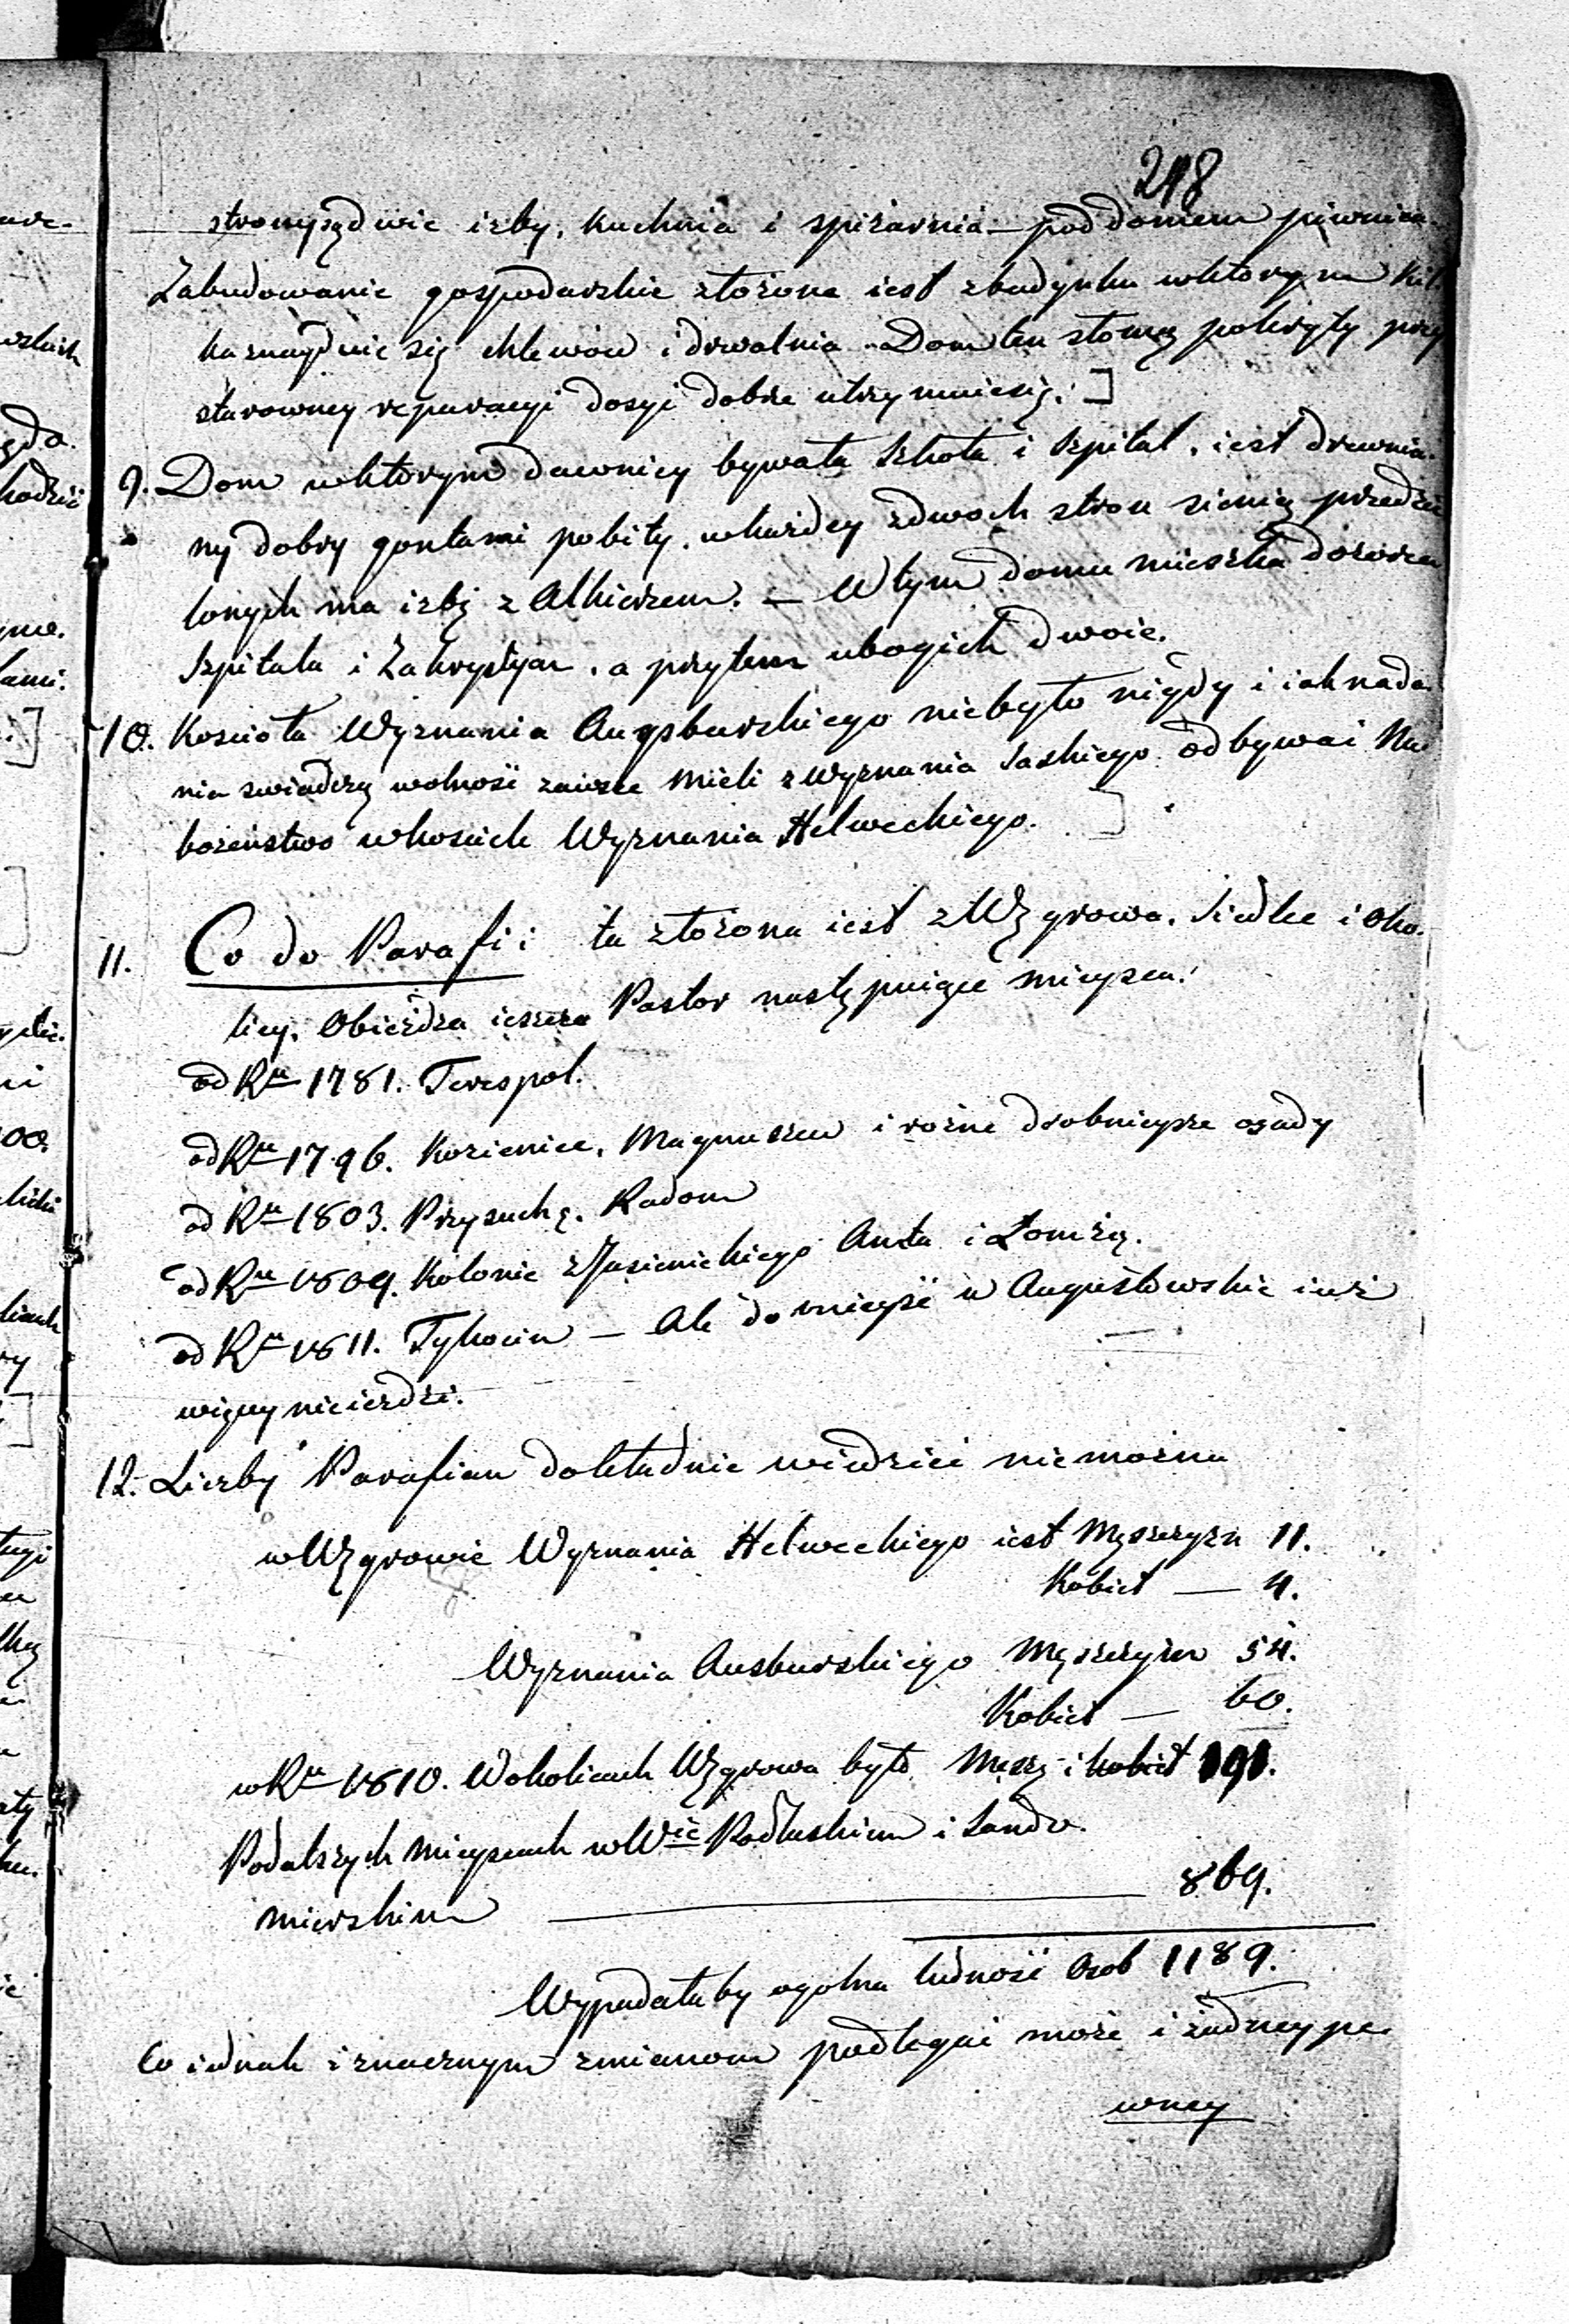 218
strony są dwie izby, kuchnia i spiżarnia – pod domem piwnica.
Zabudowanie gospodarskie złożone iest z budynku w ktorym kil
ka znayduie się chlewow i drwalnia. Dom ten słomą pokryty przy
starowney reparacyi dosyć dobrze utrzymuie się.]
9. Dom w ktorym dawniey bywała Szkoła i Szpital, iest drewnia-
ny dobry gontami pobity, w każdey z dwoch stron sienią przedzie
lonych ma izbę z Alkierzem. – W tym domu mieszka dozorca
Szpitala i Zakrystyan, a przytem ubogich dwoie.
10. Kościoła Wyznania Augsburskiego niebyło nigdy i iak nada-
nia świadczą wolność zawsze mieli z Wyznania Saskiego odbywać Na
bożeństwo w kościele Wyznania Helweckiego. ]
11. Co do Parafii ta złożona iest z Węgrowa, Siedlec i Oko-
licy. Obieżdza ieszcze Pastor następuiące mieysca:
od Rku 1781. Terespol.
od Rku 1796. Kozienice, Magnuszew i rożne drobnieysze osady
od Rku 1803. Przysuchę, Radom
od Rku 1809. Kolonie z Jasienickiego Amta i Łomżę.
od Rku 1811. Tykocin – Ale do mieysc w Augustowskie iuż
więcey nieieździ.
12. Liczby Parafian dokładnie wiedzieć niemożna
w Węgrowie Wyznania Helweckiego iest Męszczyzn 11.
Kobiet — 4.
Wyznania Ausburskiego Męszczyzn 54.
Kobiet — 60.
w Rku 1810. W okolicach Węgrowa było Męsz: i kobiet 191.
Po dalszych mieyscach w Wie Podlaskim i Sando-
mierskim — 869.
Wypadałaby ogolna ludność Osob 1189.
Co iednak i znacznym zmianom podlegać może i żadney pe-
wney